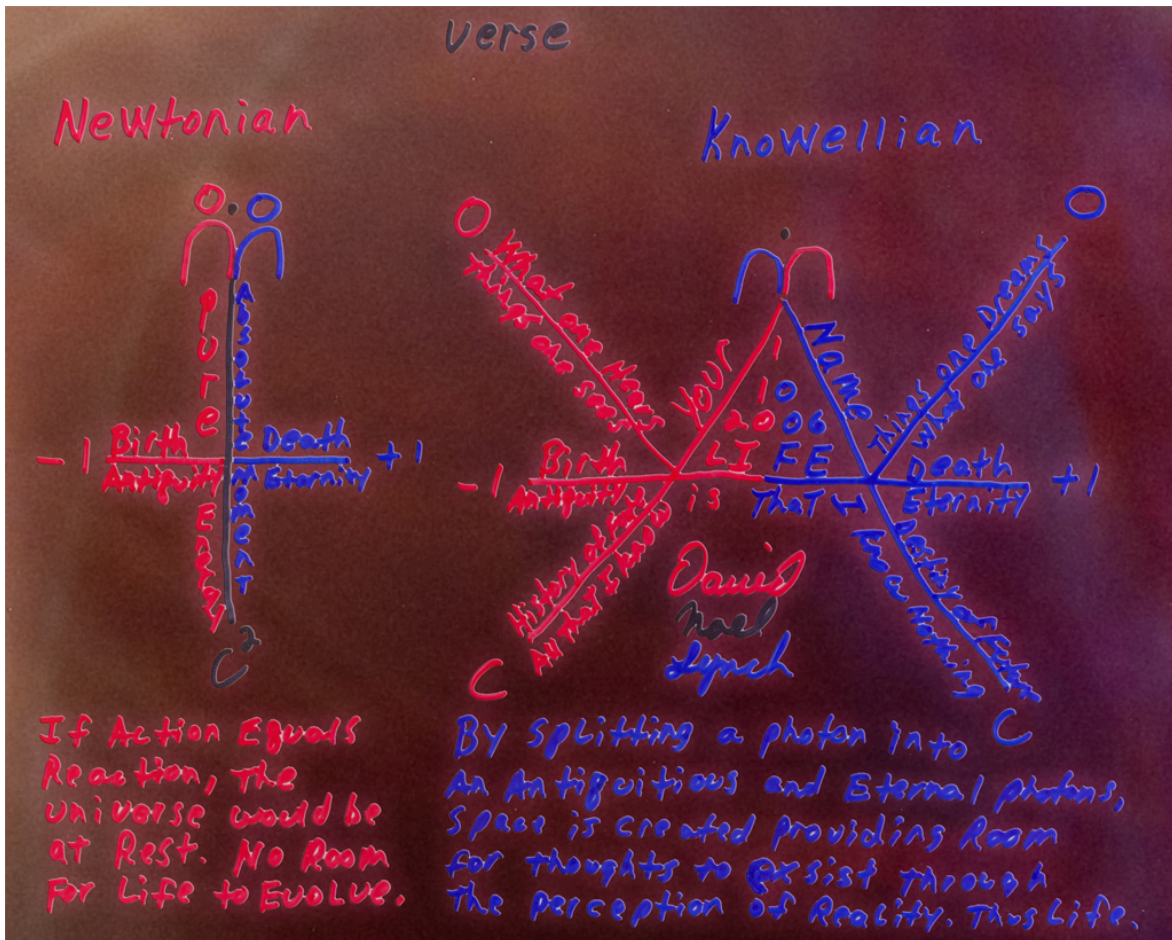 verse
Newtonian
Knowellian
O . O
Pure Energy
Absolute Moment
- 1
Birth
Antiquity
Death
Eternity
+ 1
C²
O
O
What one Hears
Things one sees
Your
Name
1
1 0
2 0 0 6
L I F E
Things one Dreams
What one says
- 1
Birth
Antiquity
is
That I
Death
Eternity
+ 1
History
All that I
Know Nothing
C
C
David
Noel
Lynch
If Action Equals
Reaction, The
universe would be
at Rest. No Room
For Life to Evolve.
By splitting a photon into
An Antiquitious and Eternal photons,
Space is created providing Room
for thoughts to exsist through
The perception of Reality. Thus Life.